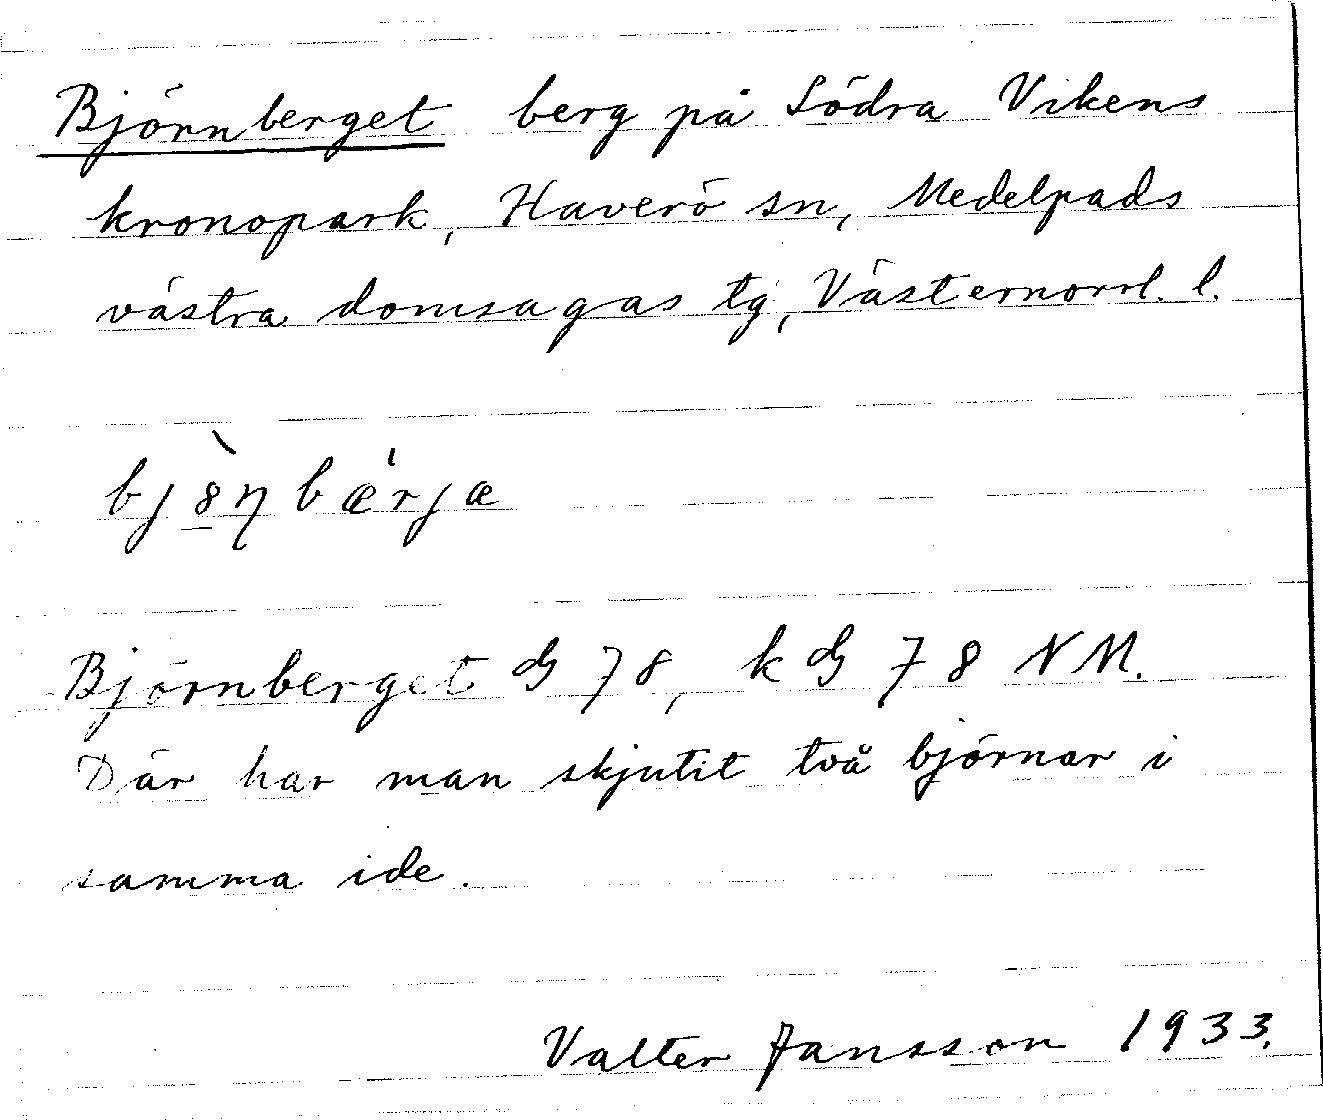 Björnberget berg på Södra Vikens
kronopark, Haverö sn, Medelpads
västra domsagas tg, Västernorrl. l.
bj8̲̀ŋbǽrjæ
Björnberget G 78, k G 78 NM.
Där har man skjutit två björnar i
samma ide.
Valter Jansson 1933.